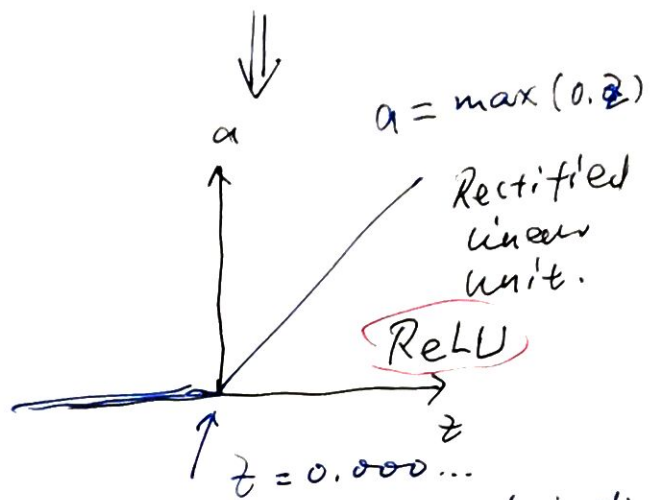 a = max(0.z)
a
Rectified
linear
unit.
ReLU
z
z = 0.000...